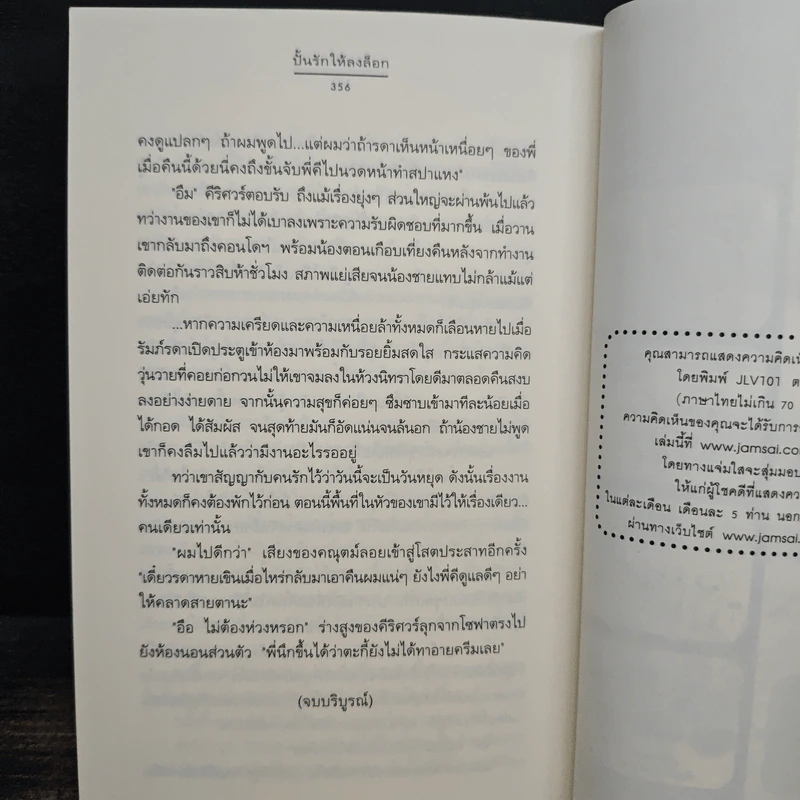 ปั้นรักให้ลงล็อก
356
คงดูแปลกๆ ถ้าผมพูดไป...แต่ผมว่าถ้ารดาเห็นหน้าเหนื่อยๆ ของพี่
เมื่อคืนนี้ด้วยนี่คงถึงขั้นจับพี่คีไปนวดหน้าทำสปาแหง"
"อืม" คีริศวร์ตอบรับ ถึงแม้เรื่องยุ่งๆ ส่วนใหญ่จะผ่านพ้นไปแล้ว
ทว่างานของเขาก็ไม่ได้เบาลงเพราะความรับผิดชอบที่มากขึ้น เมื่อวาน
เขากลับมาถึงคอนโดฯ พร้อมน้องตอนเกือบเที่ยงคืนหลังจากทำงาน
ติดต่อกันราวสิบห้าชั่วโมง สภาพแย่เสียจนน้องชายแทบไม่กล้าแม้แต่
เอ่ยทัก
...หากความเครียดและความเหนื่อยล้าทั้งหมดก็เลือนหายไปเมื่อ
รัมภ์รดาเปิดประตูเข้าห้องมาพร้อมกับรอยยิ้มสดใส กระแสความคิด
วุ่นวายที่คอยก่อกวนไม่ให้เขาจมลงในห้วงนิทราโดยดีมาตลอดคืนสงบ
ลงอย่างง่ายดาย จากนั้นความสุขก็ค่อยๆ ซึมซาบเข้ามาทีละน้อยเมื่อ
ได้กอด ได้สัมผัส จนสุดท้ายมันก็อัดแน่นจนล้นอก ถ้าน้องชายไม่พูด
เขาก็คงลืมไปแล้วว่ามีงานอะไรรออยู่
ทว่าเขาสัญญากับคนรักไว้ว่าวันนี้จะเป็นวันหยุด ดังนั้นเรื่องงาน
ทั้งหมดก็คงต้องพักไว้ก่อน ตอนนี้พื้นที่ในหัวของเขามีไว้ให้เรื่องเดียว...
คนเดียวเท่านั้น
"ผมไปดีกว่า" เสียงของคณุตม์ลอยเข้าสู่โสตประสาทอีกครั้ง
"เดี๋ยวรดาหายเขินเมื่อไหร่กลับมาเอาคืนผมแน่ๆ ยังไงพี่คีดูแลดีๆ อย่า
ให้คลาดสายตานะ"
"อือ ไม่ต้องห่วงหรอก" ร่างสูงของคีริศวร์ลุกจากโซฟาตรงไป
ยังห้องนอนส่วนตัว "พี่นึกขึ้นได้ว่าตะกี้ยังไม่ได้ทาอายครีมเลย"
(จบบริบูรณ์)
คุณสามารถแสดงความคิดเห็
โดยพิมพ์ JLV101 ต
(ภาษาไทยไม่เกิน 70
ความคิดเห็นของคุณจะได้รับการ
เล่มนี้ที่ www.jamsai.co
โดยทางแจ่มใสจะสุ่มมอบ
ให้แก่ผู้โชคดีที่แสดงคว
ในแต่ละเดือน เดือนละ 5 ท่าน นอก
ผ่านทางเว็บไซต์ www.jamsai.